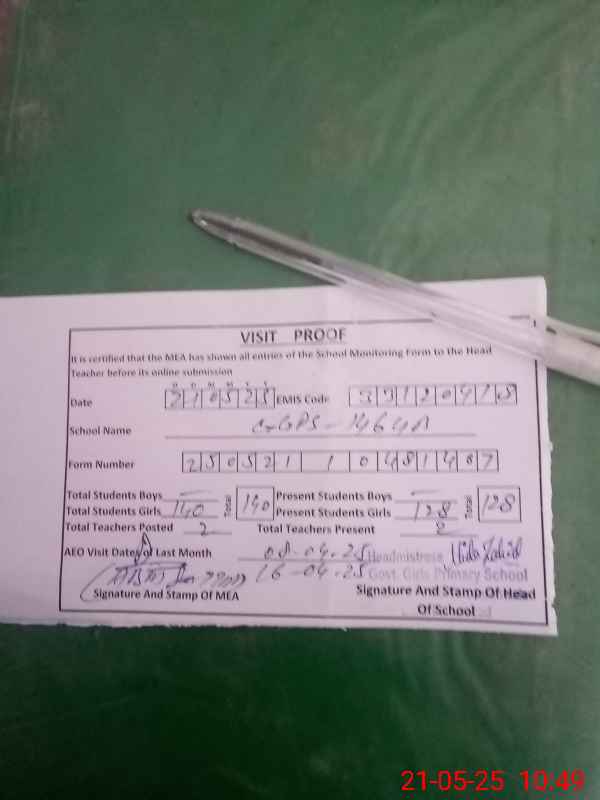 VISIT PROOF
It is certified that the MEA has shown all entries of the School Monitoring Form to the Head
Teacher before its online submission
D D M M Y Y
Date 210525 EMIS Code 33120418
School Name GGPS -
Form Number 25052110481487
Total Students Boys — Total 140 Present Students Boys — Total 128
Total Students Girls 140 Present Students Girls 128
Total Teachers Posted 2 Total Teachers Present 2
AEO Visit Dates of Last Month 08-04-25 Headmistress
16-04-25 Govt. Girls Primary School
Signature And Stamp Of MEA Signature And Stamp Of Head
Of School
21-05-25 10:49